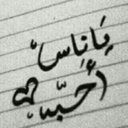 يَاناسْ
أُحبّہ